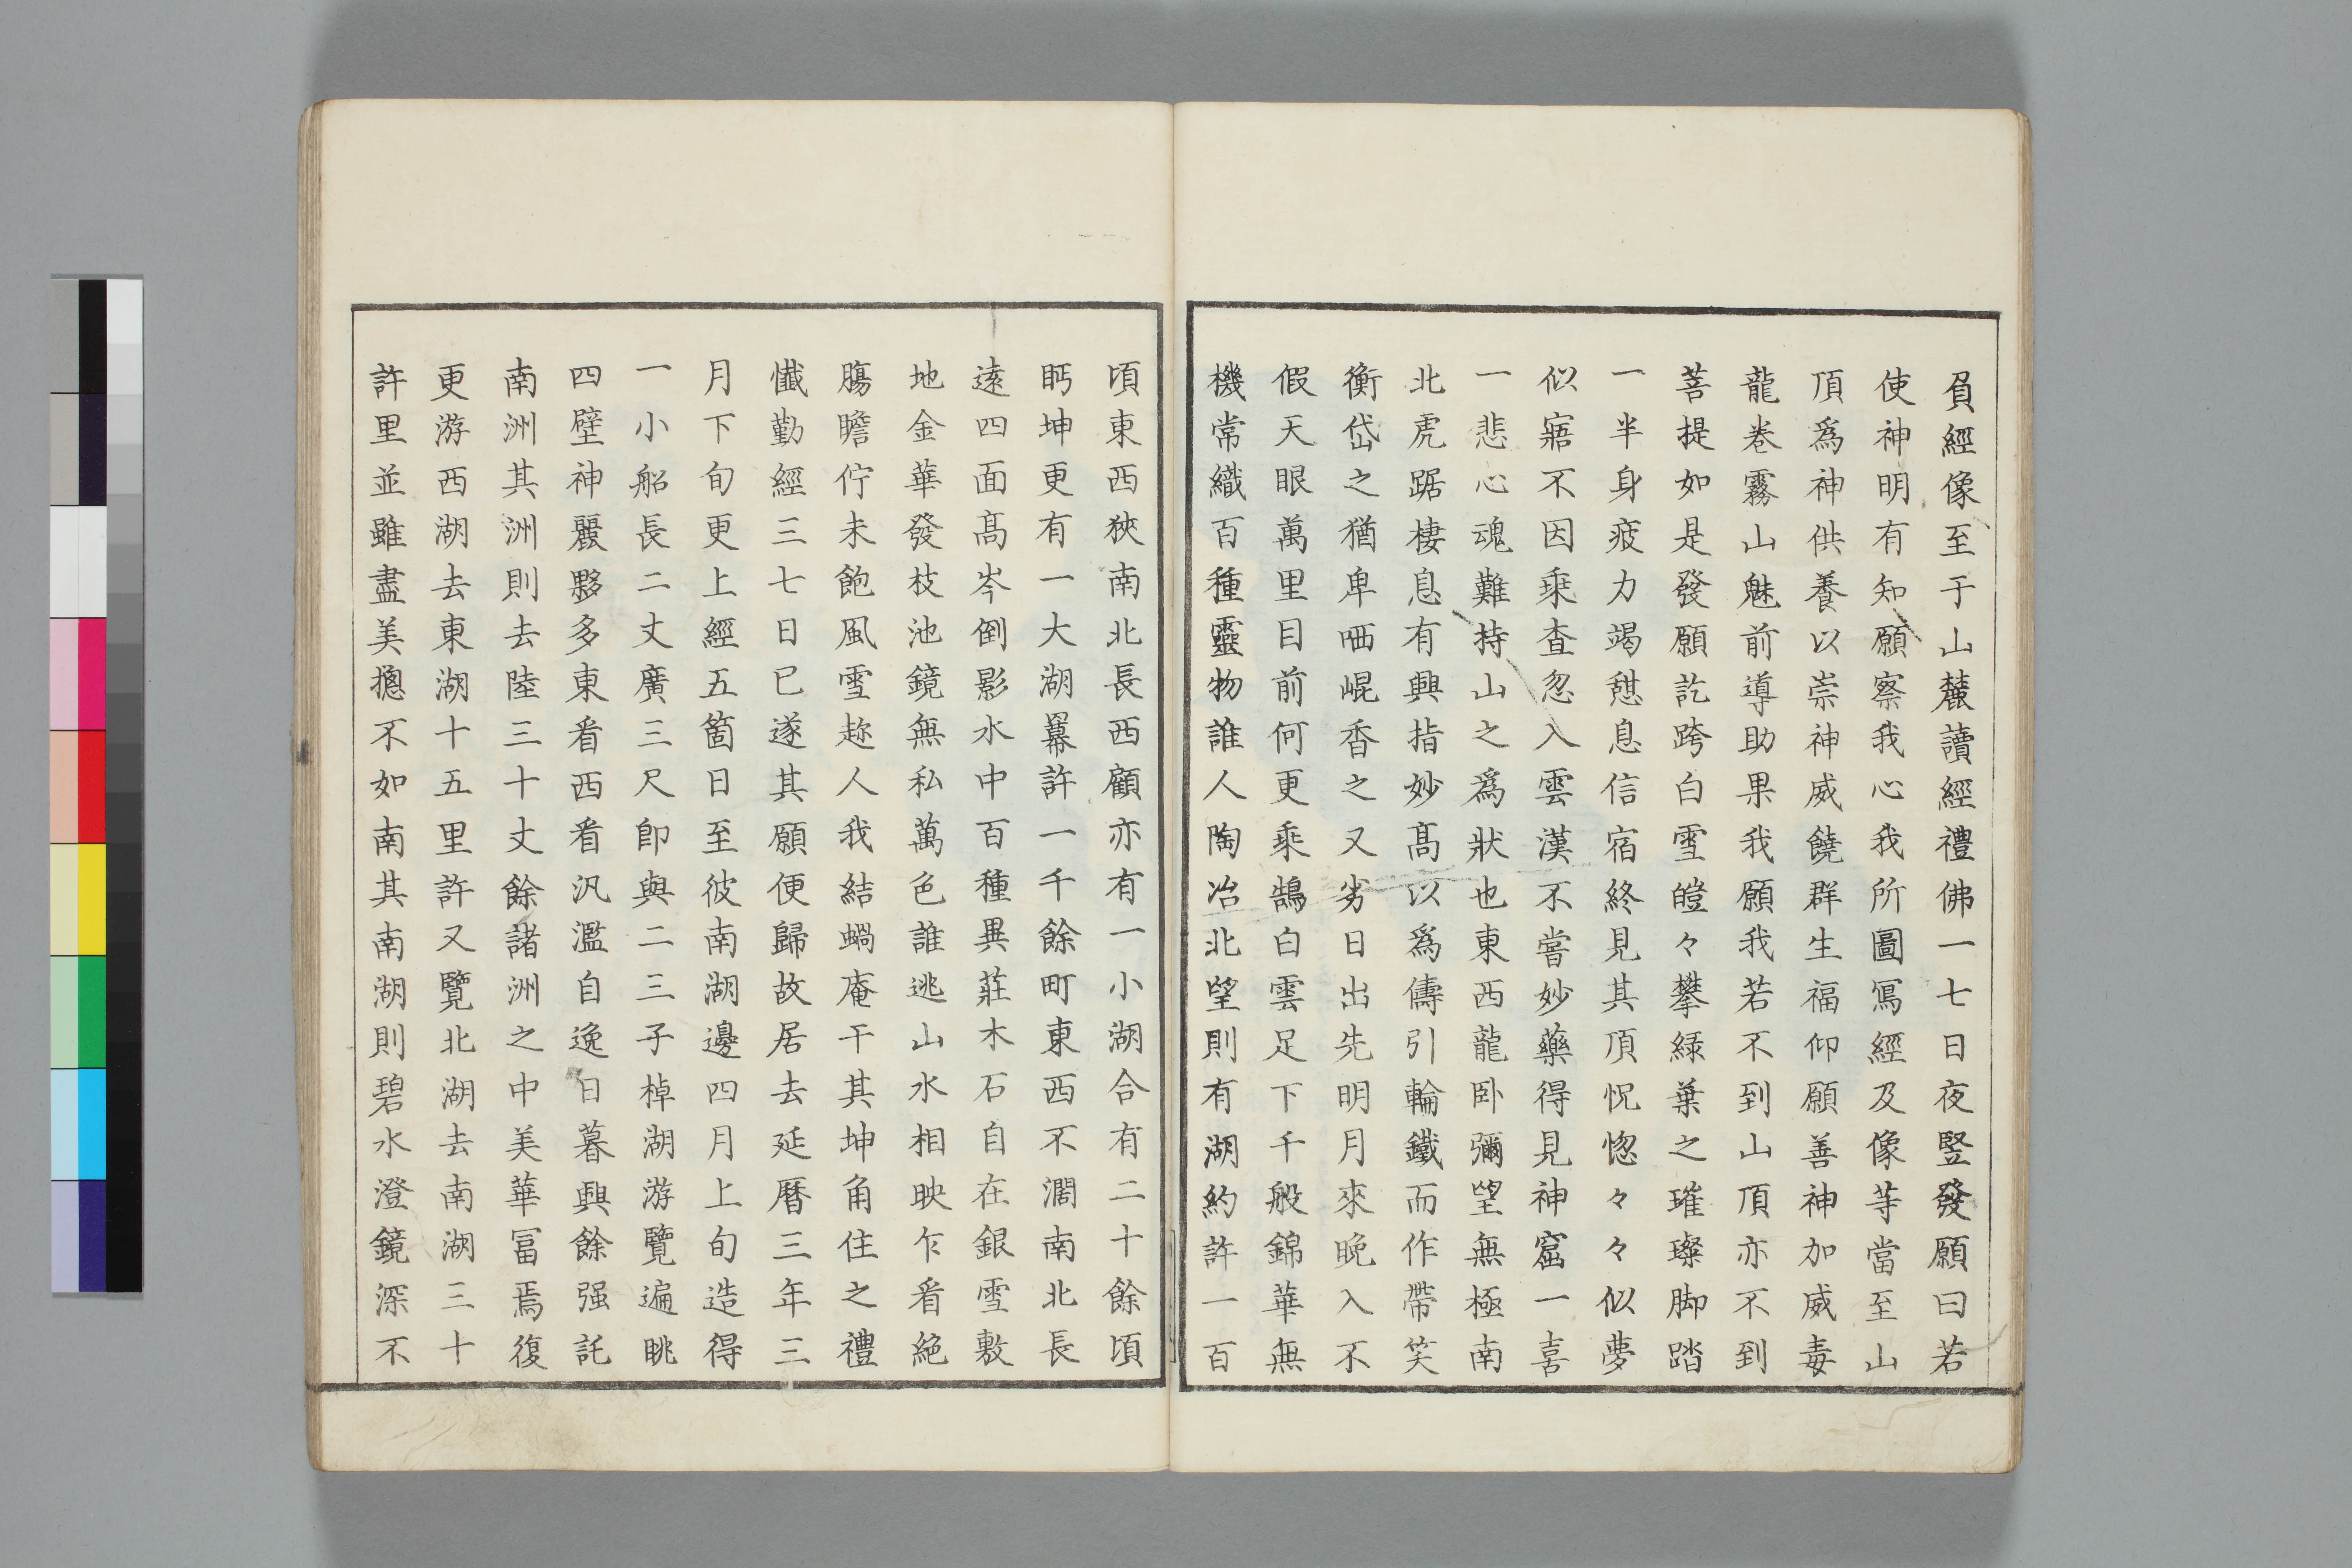 負經像至于山麓讀經禮佛一七日夜竪發願曰若
使神明有知願察我心我所圖寫經及像等當至山
頂爲神供養以崇神威饒群生福仰願善神加威毒
龍卷霧山魅前導助果我願我若不到山頂亦不到
菩提如是發願訖跨白雪皚々攀緑葉之璀璨脚踏
一半身疲力竭憇息信宿終見其頂怳惚々々似夢
似寤不因乘査忽入雲漢不嘗妙藥得見神窟一喜
一悲心魂難持山之爲狀也東西龍卧彌望無極南
北虎踞棲息有興指妙髙以爲儔引輪鐵而作帶笑
衡岱之猶卑哂崐香之又劣日出先明月來晚入不
假天眼萬里目前何更乘鵠白雲足下千般錦華無
機常織百種靈物誰人陶冶北望則有湖約許一百
頃東西狹南北長西顧亦有一小湖合有二十餘頃
眄坤更有一大湖羃許一千餘町東西不濶南北長
遠四面髙岑倒影水中百種異莊木石自在銀雪敷
地金華發枝池鏡無私萬色誰逃山水相映乍看絶
膓瞻佇未飽風雪趂人我結蝸庵干其坤角住之禮
懺勤經三七日已遂其願便歸故居去延曆三年三
月下旬更上經五箇日至彼南湖邊四月上旬造得
一小船長二丈廣三尺即與二三子棹湖游覽遍眺
四壁神麗夥多東看西看汎濫自逸日暮興餘强託
南洲其洲則去陸三十丈餘諸洲之中美華冨焉復
更游西湖去東湖十五里許又覽北湖去南湖三十
許里並雖盡美摠不如南其南湖則碧水澄鏡深不